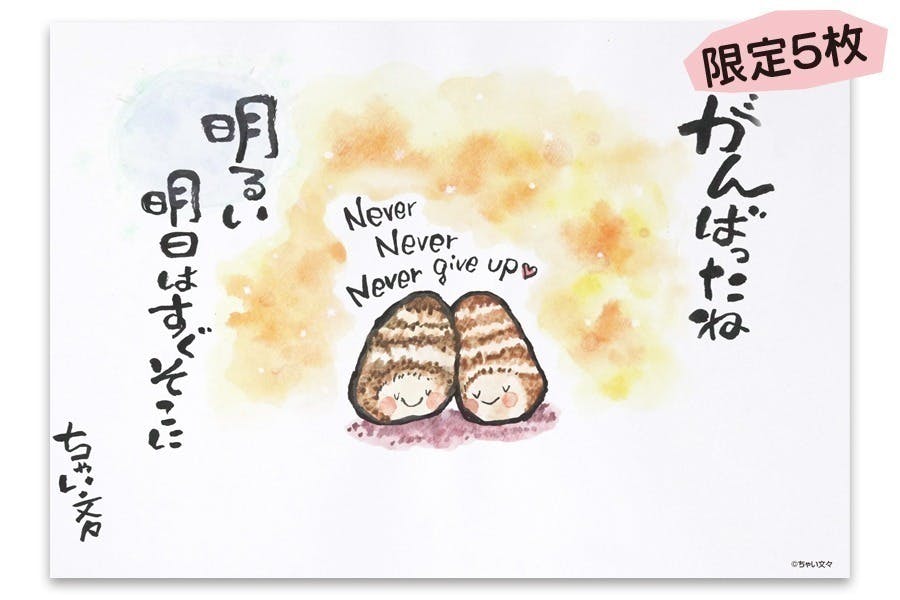 限定5枚
がんばったね
明るい
明日はすぐそこに
Never
Never
Never give up
ちゃい文々
©ちゃい文々